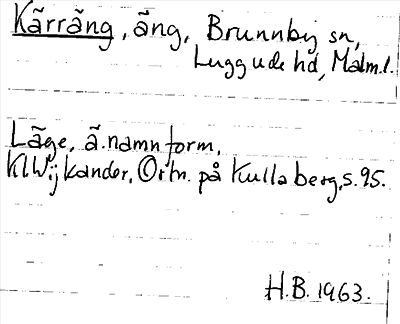 Kärräng, äng, Brunnby sn,
Luggude hd, Malm.l.
Läge, ä.namnform,
Kl Wijkander, Ortn. på Kullaberg, s. 95.
H.B. 1963.